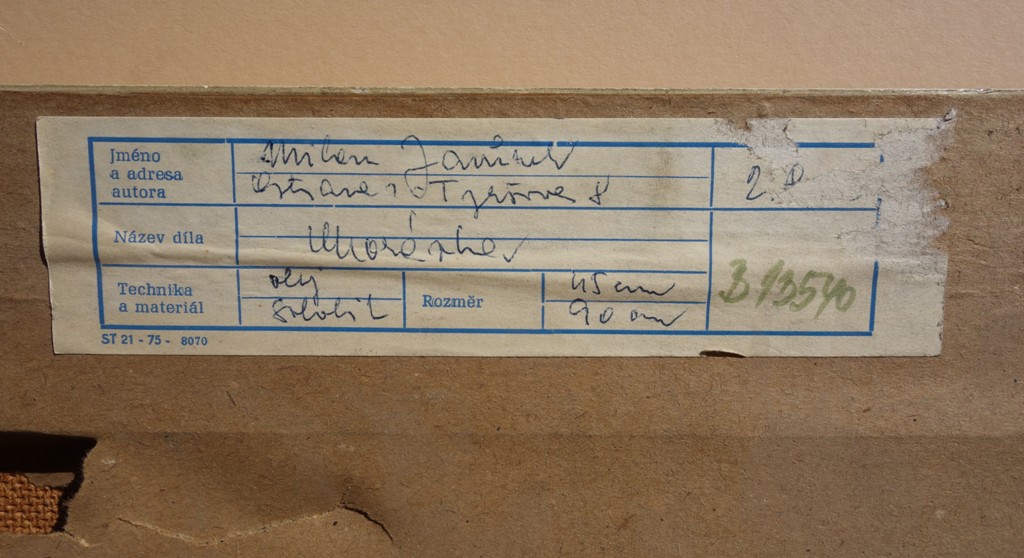 Jméno
a adresa
autora
Milan
Ostrava 1.
2.
Název díla
Morávka
Technika
a materiál
olej
sololit
Rozměr
45 cm
90 cm
B 13540
ST 21 - 75 - 8070